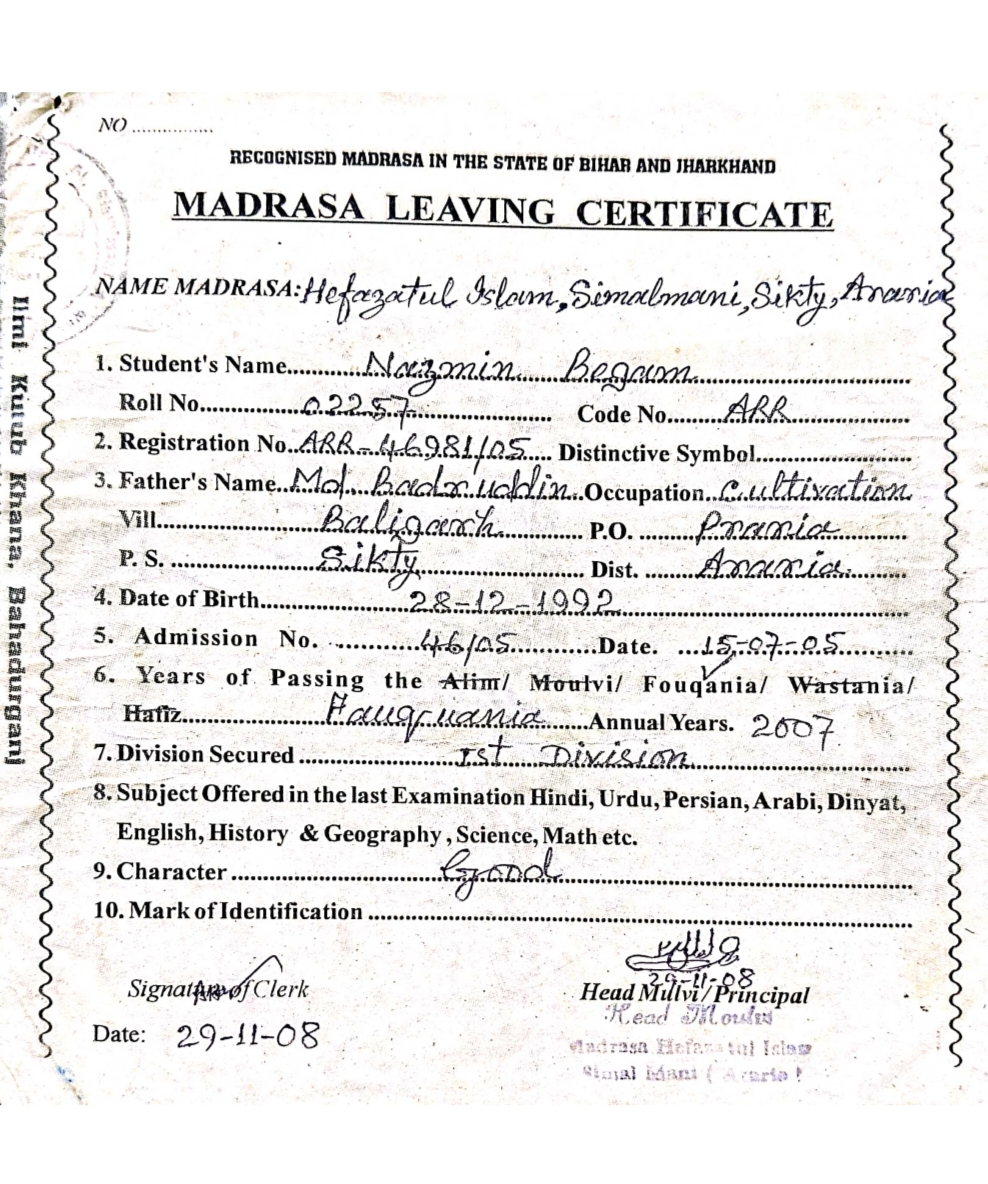 NO ................
RECOGNISED MADRASA IN THE STATE OF BIHAR AND JHARKHAND
MADRASA LEAVING CERTIFICATE
NAME MADRASA: Hefazatul Islam, Simalmani, Sikty, Araria
1. Student's Name.......... Nazmin Begam
Roll No. 02257 Code No. ARR
2. Registration No. ARR-46981/05 Distinctive Symbol..........
3. Father's Name Md. Badruddin Occupation Cultivation
Vill. Baligarh P.O. Praria
P. S. Sikty Dist. Araria
4. Date of Birth 28-12-1992
5. Admission No. 46/05 Date. 15-07-05
6. Years of Passing the Alim/ Moulvi/ Fouqania/ Wastania/
Hafiz Fauquania Annual Years. 2007
7. Division Secured Ist Division
8. Subject Offered in the last Examination Hindi, Urdu, Persian, Arabi, Dinyat,
English, History & Geography, Science, Math etc.
9. Character Good
10. Mark of Identification ..........
29-11-08
Signature of Clerk Head Mulvi/Principal
Date: 29-11-08
Head Moulvi
Madrasa Hefazatul Islam
Simal Mani (Araria)
Ilmi Kutub Khana, Bahadurganj